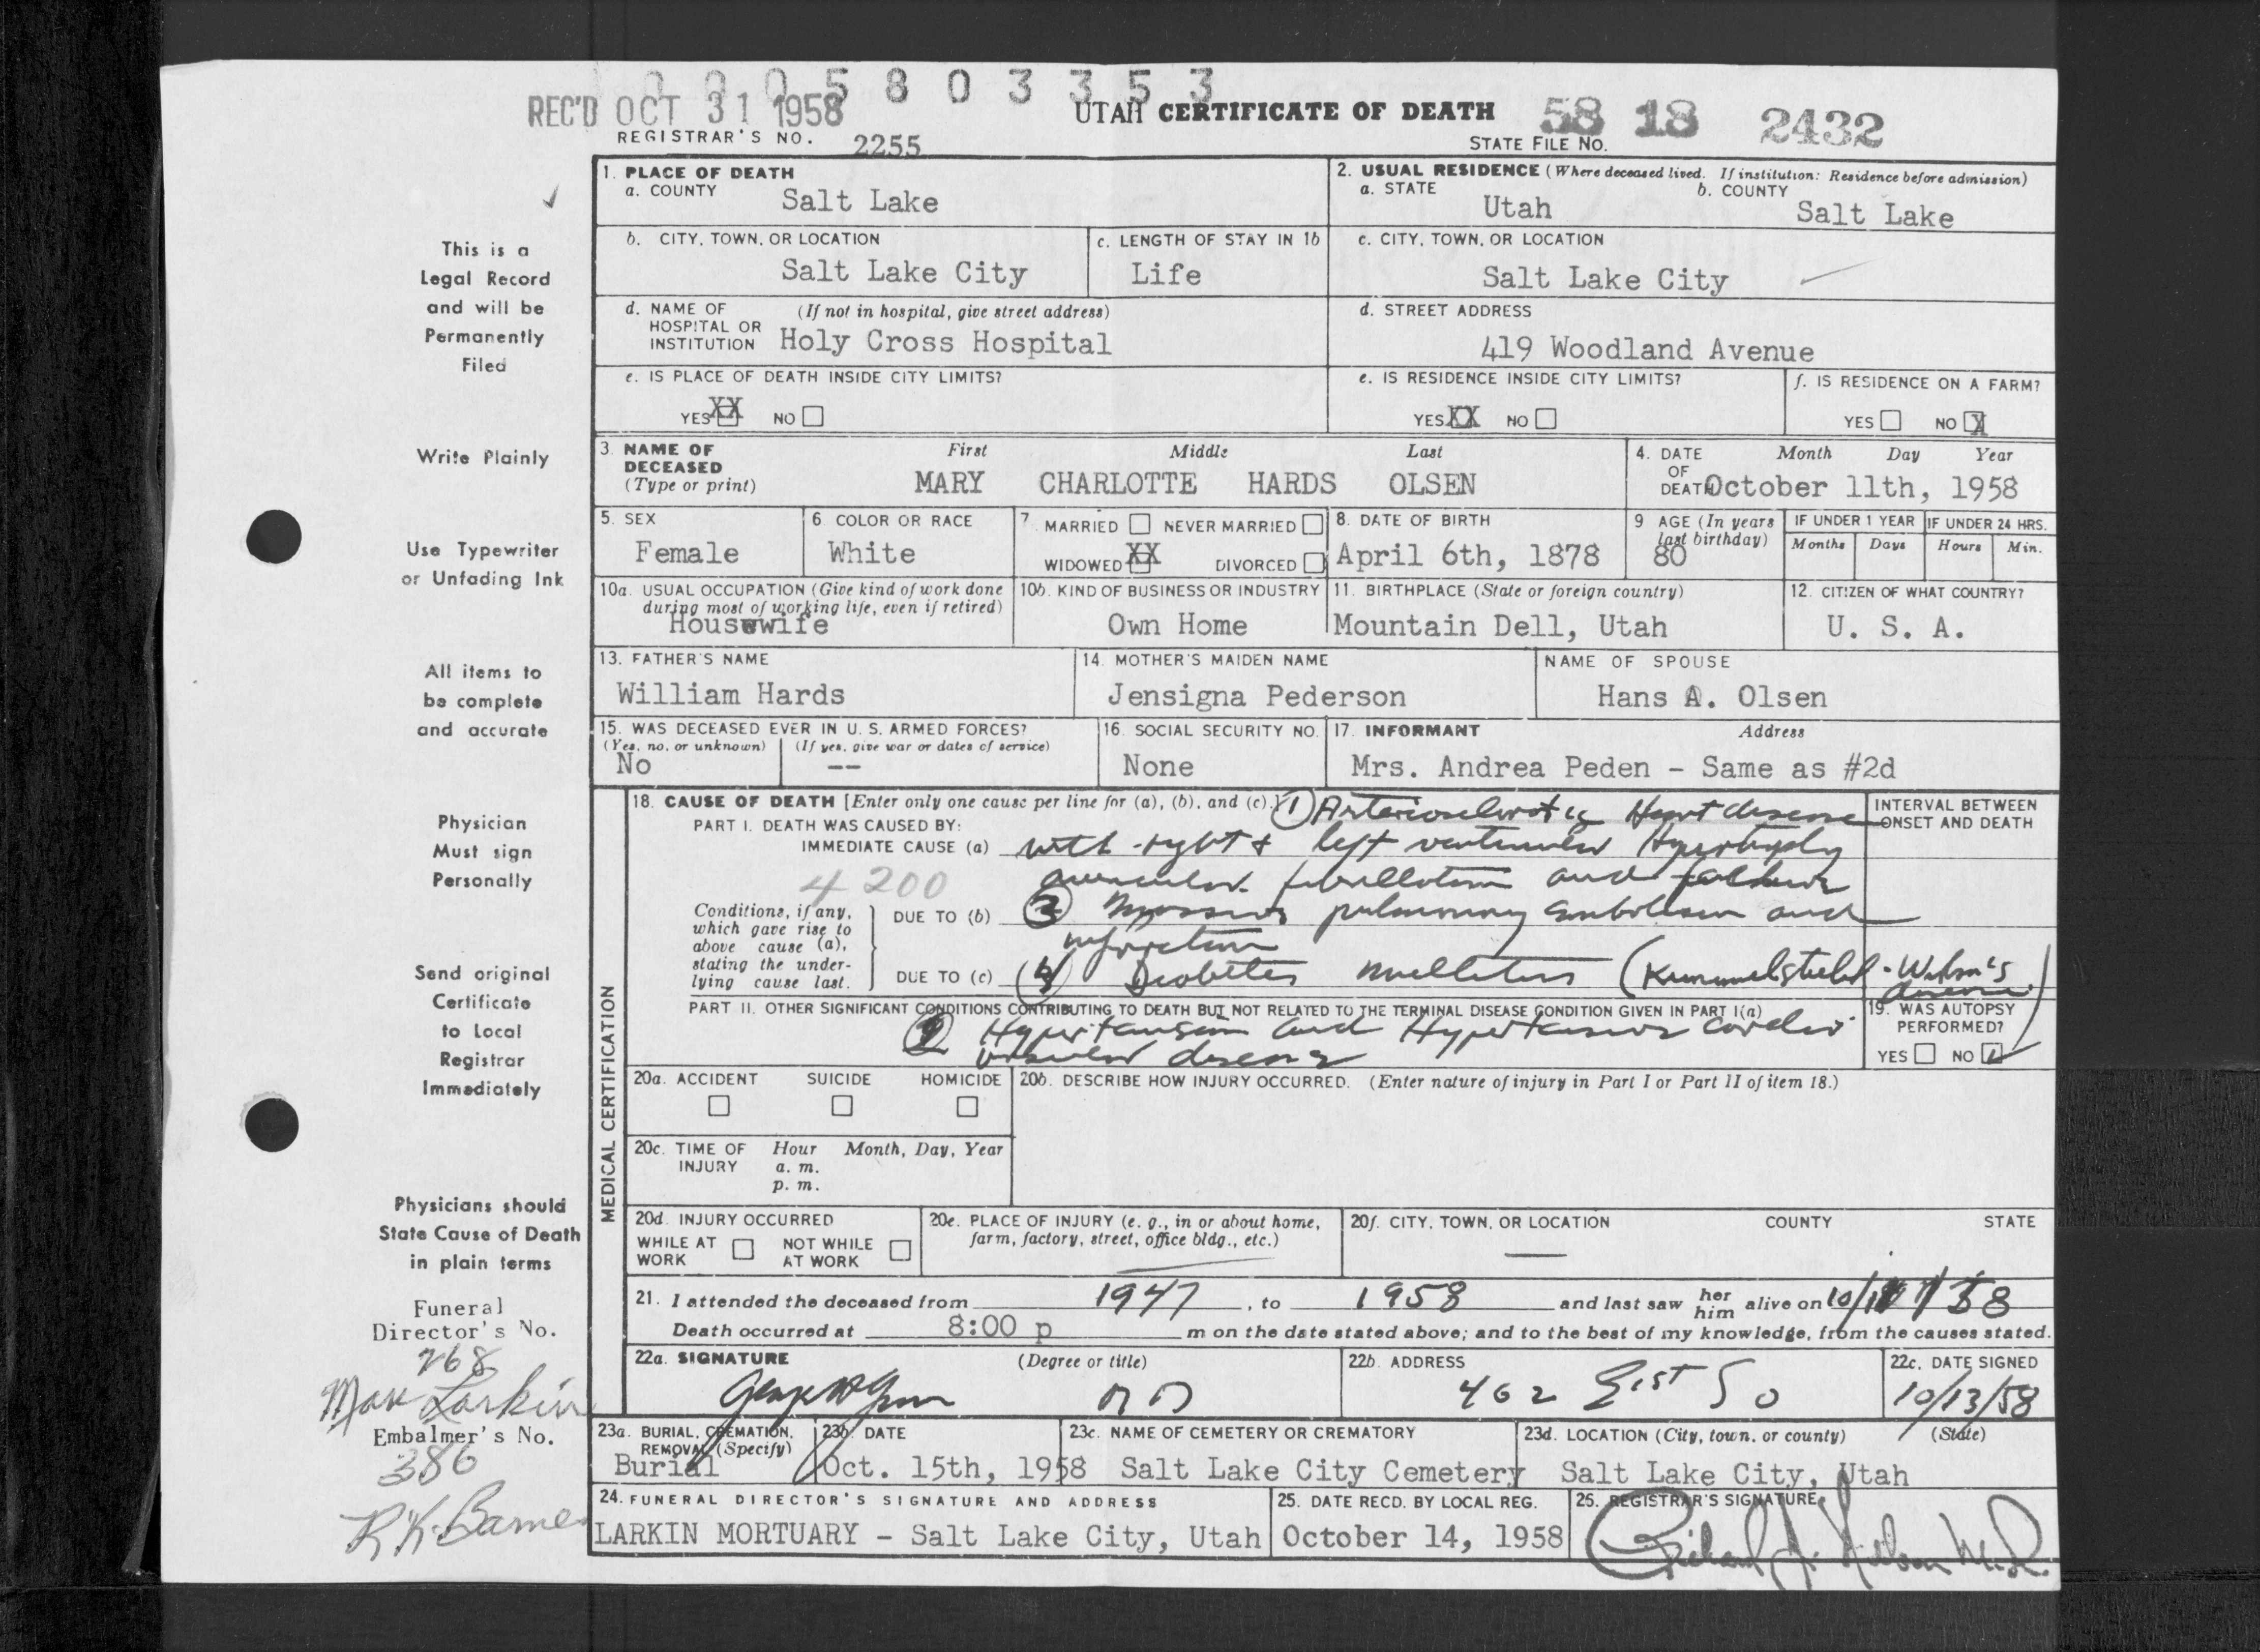 0 0 0 5 8 0 3 3 5 3
REC'D OCT 31 1958
UTAH CERTIFICATE OF DEATH
58 18 2432
REGISTRAR'S NO. 2255
STATE FILE NO.
This is a
Legal Record
and will be
Permanently
Filed
Write Plainly
Use Typewriter
or Unfading Ink
All items to
be complete
and accurate
Physician
Must sign
Personally
Send original
Certificate
to Local
Registrar
Immediately
Physicians should
State Cause of Death
in plain terms
Funeral
Director's No.
268
Max Larkin
Embalmer's No.
386
R K Barnes
1. PLACE OF DEATH
a. COUNTY
Salt Lake
2. USUAL RESIDENCE (Where deceased lived. If institution: Residence before admission)
a. STATE
Utah
b. COUNTY
Salt Lake
b. CITY, TOWN, OR LOCATION
Salt Lake City
c. LENGTH OF STAY IN 1b
Life
c. CITY, TOWN, OR LOCATION
Salt Lake City
d. NAME OF (If not in hospital, give street address)
HOSPITAL OR
INSTITUTION Holy Cross Hospital
d. STREET ADDRESS
419 Woodland Avenue
e. IS PLACE OF DEATH INSIDE CITY LIMITS?
YES XX NO
e. IS RESIDENCE INSIDE CITY LIMITS?
YES XX NO
f. IS RESIDENCE ON A FARM?
YES NO X
3. NAME OF
DECEASED
(Type or print)
First Middle Last
MARY CHARLOTTE HARDS OLSEN
4. DATE
OF
DEATH
Month Day Year
October 11th, 1958
5. SEX
Female
6. COLOR OR RACE
White
7. MARRIED NEVER MARRIED
WIDOWED XX DIVORCED
8. DATE OF BIRTH
April 6th, 1878
9 AGE (In years
last birthday)
80
IF UNDER 1 YEAR
Months Days
IF UNDER 24 HRS.
Hours Min.
10a. USUAL OCCUPATION (Give kind of work done
during most of working life, even if retired)
Housewife
10b. KIND OF BUSINESS OR INDUSTRY
Own Home
11. BIRTHPLACE (State or foreign country)
Mountain Dell, Utah
12. CITIZEN OF WHAT COUNTRY?
U. S. A.
13. FATHER'S NAME
William Hards
14. MOTHER'S MAIDEN NAME
Jensigna Pederson
NAME OF SPOUSE
Hans A. Olsen
15. WAS DECEASED EVER IN U. S. ARMED FORCES?
(Yes, no, or unknown) (If yes, give war or dates of service)
No --
16. SOCIAL SECURITY NO.
None
17. INFORMANT Address
Mrs. Andrea Peden - Same as #2d
MEDICAL CERTIFICATION
18. CAUSE OF DEATH [Enter only one cause per line for (a), (b), and (c).] 1 Arteriosclerotic Heart disease
PART I. DEATH WAS CAUSED BY:
IMMEDIATE CAUSE (a) with right & left ventricular Hypertrophy
4200
auricular fibrillation and failure
Conditions, if any,
which gave rise to
above cause (a),
stating the under-
lying cause last.
DUE TO (b) 3 Massive pulmonary embolism and
infarction
DUE TO (c) 4 Diabetes mellitus (Kimmelstiel - Wilson's
disease)
INTERVAL BETWEEN
ONSET AND DEATH
PART II. OTHER SIGNIFICANT CONDITIONS CONTRIBUTING TO DEATH BUT NOT RELATED TO THE TERMINAL DISEASE CONDITION GIVEN IN PART I(a)
2 Hypertension and Hypertensive cardio
vascular disease
19. WAS AUTOPSY
PERFORMED?
YES NO
20a. ACCIDENT SUICIDE HOMICIDE
20b. DESCRIBE HOW INJURY OCCURRED. (Enter nature of injury in Part I or Part II of item 18.)
20c. TIME OF
INJURY
Hour Month, Day, Year
a. m.
p. m.
20d. INJURY OCCURRED
WHILE AT
WORK
NOT WHILE
AT WORK
20e. PLACE OF INJURY (e. g., in or about home,
farm, factory, street, office bldg., etc.)
20f. CITY, TOWN, OR LOCATION COUNTY STATE
21. I attended the deceased from 1947, to 1958 and last saw her him alive on 10/11/58
Death occurred at 8:00 p m on the date stated above; and to the best of my knowledge, from the causes stated.
22a. SIGNATURE (Degree or title)
MD
22b. ADDRESS
462 East So
22c. DATE SIGNED
10/13/58
23a. BURIAL, CREMATION,
REMOVAL (Specify)
Burial
23b. DATE
Oct. 15th, 1958
23c. NAME OF CEMETERY OR CREMATORY
Salt Lake City Cemetery
23d. LOCATION (City, town, or county) (State)
Salt Lake City, Utah
24. FUNERAL DIRECTOR'S SIGNATURE AND ADDRESS
LARKIN MORTUARY - Salt Lake City, Utah
25. DATE RECD. BY LOCAL REG.
October 14, 1958
26. REGISTRAR'S SIGNATURE
Richard A. Nelson M.D.